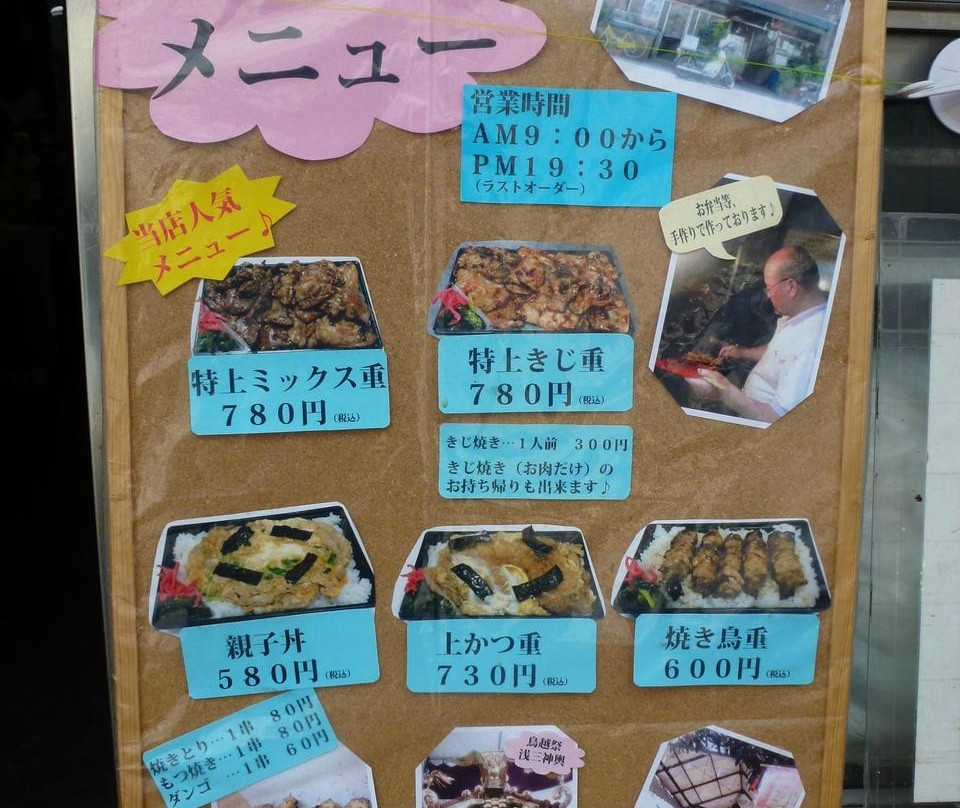 メニュー
営業時間
AM9：00から
PM19：30
（ラストオーダー）
当店人気
メニュー♪
お弁当等、
手作りで作っております♪
特上ミックス重
780円（税込）
特上きじ重
780円（税込）
きじ焼き…1人前　300円
きじ焼き（お肉だけ）の
お持ち帰りも出来ます♪
親子丼
580円（税込）
上かつ重
730円（税込）
焼き鳥重
600円（税込）
焼きとり…1串　80円
もつ焼き…1串　80円
ダンゴ　…1串　60円
鳥越祭
浅三神輿